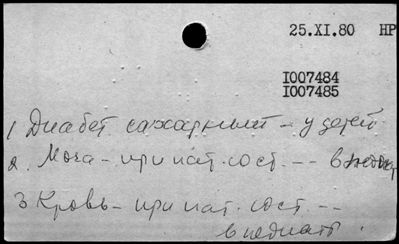 25.XI.80 НР
I007484
I007485
1 Диабет сахарный - у детей
2. Моча - при пат. сост. -- в педиат
3 Кровь - при пат. сост. --
в педиатр.